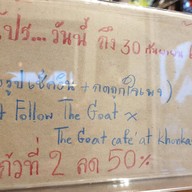 โปร... วันนี้ ถึง 30 กันยายน
รูป เช็คอิน + กดถูกใจเพจ)
Follow The Goat x
The Goat cafe' at khonkae
แก้วที่ 2 ลด 50%